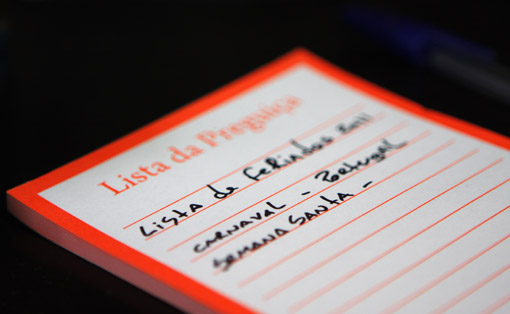 Lista da Preguiça
LISTA de FERIADOS 2011
CARNAVAL - PORTUGAL
SEMANA SANTA -